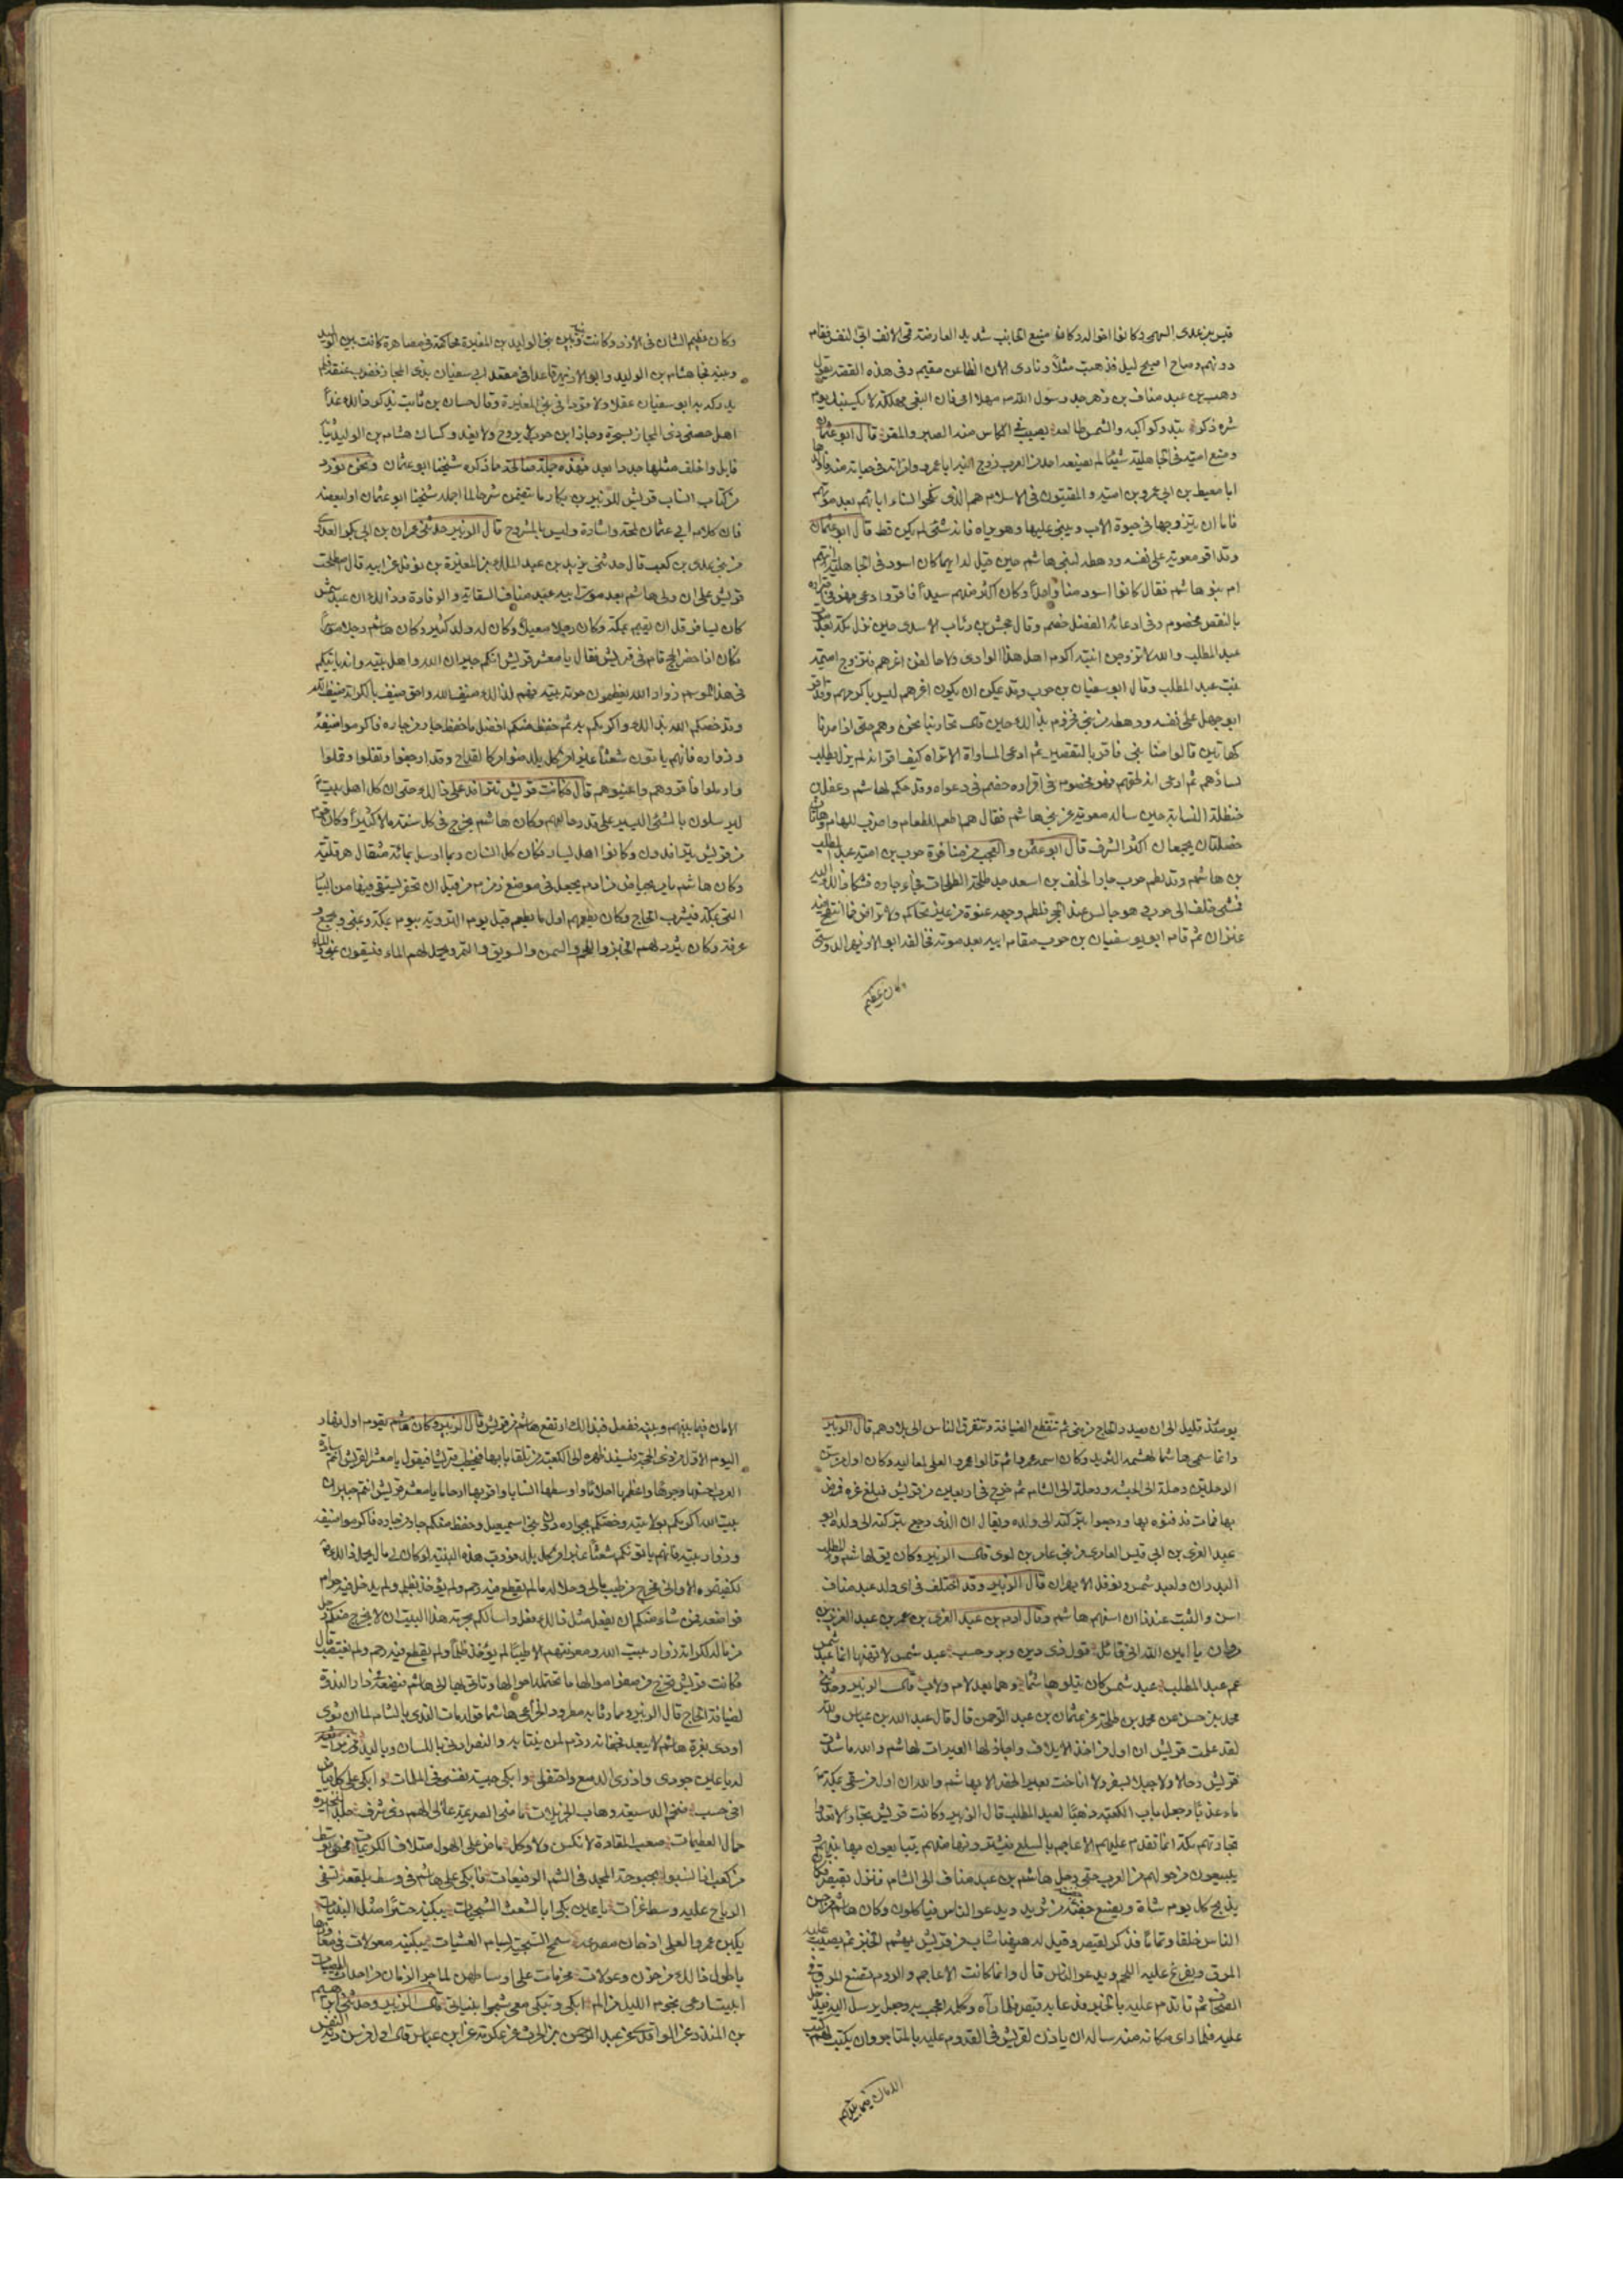 قيس بن عدى السهمى وكانوا اخواله وكان منيع الجانب شديد العارضة حمى الانف ابى النفس فقام
دونهم وصاح اصبح ليل فذهبت مثلا ونادى الان الظاعن مقيم وفى هذه القصة يقول
وهب بن عبد مناف بن زهره جد رسول الله مهلا امى فان البغى مهلكة لا يكسبنك يوم
شره ذكر تبدو كواكبه والشمس طالعة يصب فى الكاس منه الصبر والمقر قال ابو عثمان
وصنع امية فى الجاهلية شيئا لم يصنعه احد من العرب زوج ابنه ابا عمرو امراته فى حياته منه فاولدها
ابا معيط بن ابى عمرو بن امية والمقيتون فى الاسلام هم الذى نكحوا نساء ابائهم بعد موتهم
فاما ان يتزوجها فى حيوة الاب ويبنى عليها وهو يراه فانه شئ لم يكن قط قال ابو عثمان
وقد اقر معوية على نفسه ورهطه لبنى هاشم حين قيل له ايهما كان اسود فى الجاهلية انتم
ام بنو هاشم فقال كانوا اسود منا واحدا وكنا اكثر منهم سيدا فاقر وادعى فهو فى اقراره
بالنقص مخصوم وفى ادعائه الفضل خصم وقال جحش بن رئاب الاسدى حين نزل مكة بعد موت
عبد المطلب والله لاتزوجن ابنة اكرم اهل هذا الوادى ولاحالفن اعزهم فتزوج اميمة
بنت عبد المطلب وقال ابو سفيان بن حرب وقد يمكن ان يكون اعزهم ليس باكرمهم وقد اقر
ابو جهل على نفسه ورهطه من بنى مخزوم بذالك حين قال تحاربنا نحن وهم حتى اذا صرنا
كهاتين قالوا منا نبى فاقر بالتقصير ثم ادعى المساواة الا تراه كيف اقر انه لم يزل يطلب
شاوهم ثم ادعى انه لحقهم فهو مخصوم فى اقراره خصم فى دعواه وقد حكم لهاشم دغفل بن
حنظلة النسابة حين ساله معوية عن بنى هاشم فقال هم اطعم للطعام واضرب للهام وهاتان
خصلتان يجمعان اكثر الشرف قال ابو عثمن والعجب من منافرة حرب بن امية عبد المطلب
بن هاشم وقد لطم حرب جارا لخلف بن اسعد جد طلحة الطلحات فجاء جاره فشكا ذالك اليه
فمشى خلف الى حرب هو جالس عند الحجر فلطم وجهه عنوة من غير تحاكم ولا تراض فما انتطح فيه
عنزان ثم قام ابو سفيان بن حرب مقام ابيه بعد موته فحالفه ابو الازيهر الدوسى
وكان عظيم
وكان عظيم الشان فى الازد وكانت بينه وبين بنى الوليد بن المغيرة محاكمة فى مصاهرة كانت بين الوليد
وبينه فجا هشام بن الوليد وابو الازيهر قاعد فى مقعد ابى سفيان بذى المجاز فضرب عنقه فلم
يدرك به ابو سفيان عقلا ولا قودا فى بنى المغيرة وقال حسان بن ثابت يذكر ذالك غدا
اهل حصنى ذى المجاز بسحرة وجار ابن حرب لا يروح ولا يغدو كساك هشام بن الوليد ثيابه
فابل واخلف مثلها جددا بعد فهذه جملة صالحة مما ذكره شيخنا ابو عثمان ونحن نورد
من كتاب انساب قريش للزبير بن بكار ما يتضمن شرحا لما اجمله شيخنا ابو عثمان او لبعضه
فان كلام ابى عثمان لمحة واشارة وليس بالمشروح قال الزبير حدثنى عمر بن ابى بكر العدوى
من بنى عدى بن كعب قال حدثنى يزيد بن عبد الملك بن المغيرة بن نوفل عن ابيه قال اصطلحت
قريش على ان ولى هاشم بعد موت ابيه عبد مناف السقاية والرفادة وذالك ان عبد شمس
كان يسافر قل ان يقيم بمكة وكان رجلا معيلا وكان له ولد كثير وكان هاشم رجلا موسرا
فكان اذا حضر الحج قام فى قريش فقال يا معشر قريش انكم جيران الله واهل بيته وانه ياتيكم
فى هذا الموسم زوار الله يعظمون حرمة بيته فهم لذالك ضيف الله واحق ضيف بالكرامة ضيف الله
وقد خصكم الله بذالك واكرمكم به ثم حفظ منكم افضل ما حفظ جار من جاره فاكرموا ضيفه
وزواره فانهم ياتون شعثا غبرا من كل بلد ضوامر كالقداح وقد ارجفوا وتفلوا وقملوا
وارملوا فاقروهم واعينوهم قال فكانت قريش تترافد على ذالك حتى ان كل اهل بيت
ليرسلون بالشئ اليسير على قدر حالهم وكان هاشم يخرج فى كل سنة مالا كثيرا وكان قوم
من قريش يترافدون وكانوا اهل يسار فكان كل انسان ربما ارسل بمائة مثقال هرقلية
وكان هاشم يامر بحياض من ادم يجعل فى موضع زمزم من قبل ان تحفر يستقى فيها من البئار
التى بمكة فيشرب الحاج وكان يطعمهم اول ما يطعم قبل يوم التروية بيوم بمكة وبمنى وبجمع و
عرفة وكان يثرد لهم الخبز واللحم والسمن والسويق والتمر ويحمل لهم الماء فيسقون بمنى والماء
يومئذ قليل الى ان يصدر الحاج من منى ثم تنقطع الضيافة وتتفرق الناس الى بلادهم قال الزبير
وانما سمى هاشما لهشمه الثريد وكان اسمه عمرو ثم قالوا عمرو العلى لمعاليه وكان اول من سن
الرحلتين رحلة الى الحبشة ورحلة الى الشام ثم خرج فى اربعين من قريش فبلغ غزه فمرض
بها فمات فدفنوه بها ورجعوا بتركته الى ولده ويقال ان الذى رجع بتركته الى ولده ابو
عبد العزى بن ابى قيس العامرى من بنى عامر بن لوى قال الزبير وكان يق لهاشم والمطلب
البدران ولعبد شمس ونوفل الابهران قال الزبير وقد اختلف فى اى ولد عبد مناف
اسن والثبت عندنا ان اسنهم هاشم وقال ادم بن عبد العزى بن عمر بن عبد العزيز بن
مروان يا امين الله انى قائل قول ذى دين وبر وحسب عبد شمس لا تهنها انما عبد شمس
عم عبد المطلب عبد شمس كان يتلو هاشما وهما بعد لام ولاب قال الزبير وحدثنى
محمد بن حسن عن محمد بن طلحة عن عثمان بن عبد الرحمن قال قال عبد الله بن عباس والله
لقد علمت قريش ان اول من اخذ الايلاف واجاز لها العيرات لهاشم والله ما شدت
قريش رحالا ولا حبلا بسفر ولا اناخت بعيرا لحضر الا بهاشم والله ان اول من سقى بمكة
ماء عذبا وجعل باب الكعبة ذهبا لعبد المطلب قال الزبير وكانت قريش تجارا لا تعدو
تجارتهم مكة انما تقدم عليهم الاعاجم بالسلع فيشترونها منهم يتبايعون بها بينهم و
يبيعون من حولهم من العرب حتى رحل هاشم بن عبد مناف الى الشام فنزل بقيصر فكان
يذبح كل يوم شاة ويصنع جفنة من ثريد ويدعو الناس فياكلون وكان هاشم من احسن
الناس خلقا وتماما فذكر لقيصر وقيل له ههنا شاب من قريش يهشم الخبز ثم يصب عليه
المرق ويفرغ عليه اللحم ويدعو الناس قال وانما كانت الاعاجم والروم تصنع المرق فى
الصحاف ثم تاتدم عليه بالخبز فدعا به قيصر فلما رآه وكلمه اعجب به وجعل يرسل اليه فيدخل
عليه فلما راى مكانه منه ساله ان ياذن لقريش فى القدوم عليه بالمتاجر وان يكتب لهم كتب
الامان فيما بينهم
الامان فيما بينهم وبينه ففعل فبذالك ارتفع هاشم من قريش قال الزبير وكان هاشم يقوم اول نهار
اليوم الاول من ذى الحجة فيسند ظهره الى الكعبة من تلقاء بابها فيخطب قريشا فيقول يا معشر قريش انتم سادة
العرب احسنها وجوها واعظمها احلاما واوسطها انسابا واقربها ارحاما يا معشر قريش انتم جيران
بيت الله اكرمكم بولايته وخصكم بجواره دون بنى اسمعيل وحفظ منكم جار من جاره فاكرموا ضيفه
وزوار بيته فانهم ياتونكم شعثا غبرا من كل بلد فورب هذه البنية لو كان لى مال يحمل ذالك
لكفيتموه الا وانى مخرج من طيب مالى وحلاله ما لم يقطع فيه رحم ولم يؤخذ بظلم ولم يدخل فيه حرام
فواضعه فمن شاء منكم ان يفعل مثل ذالك فعل واسالكم بحرمة هذا البيت ان لا يخرج منكم رجل
من ماله لكرامة زوار بيت الله ومعونتهم الا طيبا لم يؤخذ ظلما ولم يقطع فيه رحم ولم يغتصب قال
فكانت قريش تخرج من صفو اموالها ما تحتمله احوالها وتاتى بها الى هاشم فيضعه فى دار الندوة
لضيافة الحاج قال الزبير ومما رثى به مطرود الخزاعى هاشما قوله مات الندى بالشام لما ان ثوى
اودى بغزة هاشم لا يبعد فجفانه رذم لمن ينتابه والنصر ادنى باللسان وباليد ومن مراثيه
له يا عين جودى واذرى الدمع واحتفلى وابكى خبيئة نفسى فى الملمات وابكى على كل فياض
اخى حسب ضخم الدسيعة وهاب الجزيلات ماضى الصريمة عالى الهم ذى شرف جلد النحيزة
حمال العظيمات صعب المقادة لا نكس ولا وكل ماض على الهول متلاف الكريمات محض توسط
من كعب اذا نسبوا بحبوحة المجد فى الشم الرفيعات فابكى على هاشم فى وسط بلقعة تسفى
الرياح عليه وسط غزات يا عين بكى ابا الشعث الشجيات يبكينه حسرا مثل البنيات
يبكين عمرو العلى اذ حان مصرعه سمح السجية بسام العشيات يبكينه معولات فى معاوزها
يا طول ذالك من حزن وعولات محزمات على اوساطهن لما جر الزمان من احداث المصيبات
ابيت ارعى نجوم الليل من الم ابكى وتبكى معى شجوا بنياتى قال الزبير وحدثنى ابراهيم
بن المنذر عن الواقدى عن عبد الرحمن بن الحرث عن عكرمة عن ابن عباس قال اول من سن دية النفس